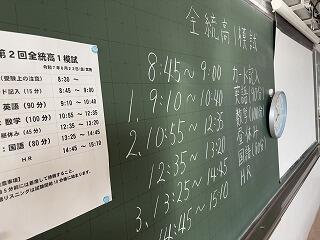 第2回全統高1模試
令和7年8月22日(金)実施
(受験上の注意) 8:30 ～
ード記入 (15分) 8:45 ～ 9:00
英語 (90分) 9:10 ～ 10:40
:数学 (100分) 10:55 ～ 12:35
昼休み (45分) 12:35 ～ 13:20
:国語 (80分) 13:25 ～ 14:45
HR 14:45 ～ 15:10
全統高1模試
8:45 ～ 9:00 カード記入
1. 9:10 ～ 10:40 英語(90分)
2. 10:55 ～ 12:35 数学(100分)
12:35 ～ 13:20 昼休み
3. 13:25 ～ 14:45 国語(80分)
14:45 ～ 15:10 HR